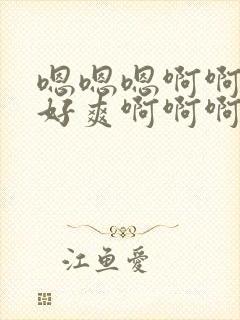 嗯嗯嗯啊啊
好爽啊啊啊
江鱼爱